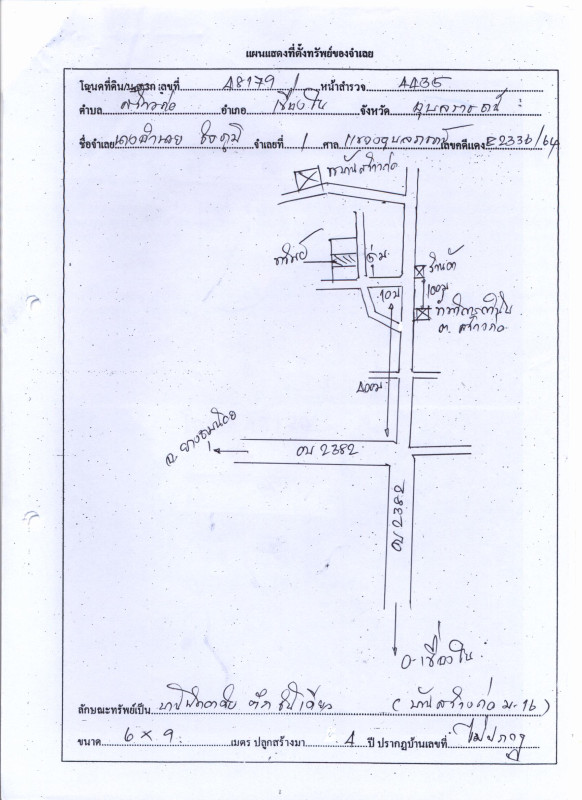 แผนแสดงที่ตั้งทรัพย์ของจำเลย
โฉนดที่ดิน/น.ส.3ก เลขที่ 48179 / หน้าสำรวจ 4435
ตำบล สร้างถ่อ อำเภอ เขื่องใน จังหวัด อุบลราชธานี
ชื่อจำเลย จำเลยที่ 1 ศาล แขวงอุบลราชธานี เลขคดีแดง ผ2336/64
บ้านสร้างถ่อ
ทรัพย์
6 ม
ร้านค้า
10 ม
100 ม
ต. สร้างถ่อ
400 ม
อบ 2382
อบ 2382
อ. เขื่องใน
ลักษณะทรัพย์เป็น บ้านพักอาศัย ตึก ชั้นเดียว ( บ้านสร้างถ่อ ม. 16 )
ขนาด 6 x 9 เมตร ปลูกสร้างมา 4 ปี ปรากฏบ้านเลขที่ ไม่ปรากฏ